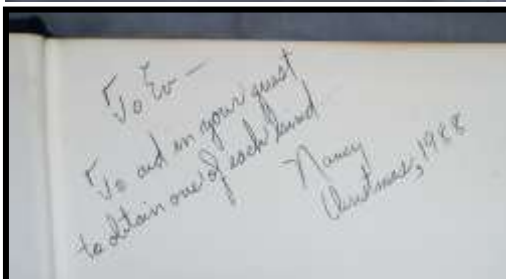 To Ev —
To aid in your quest
to obtain one of each kind
Nancy
Christmas, 1988